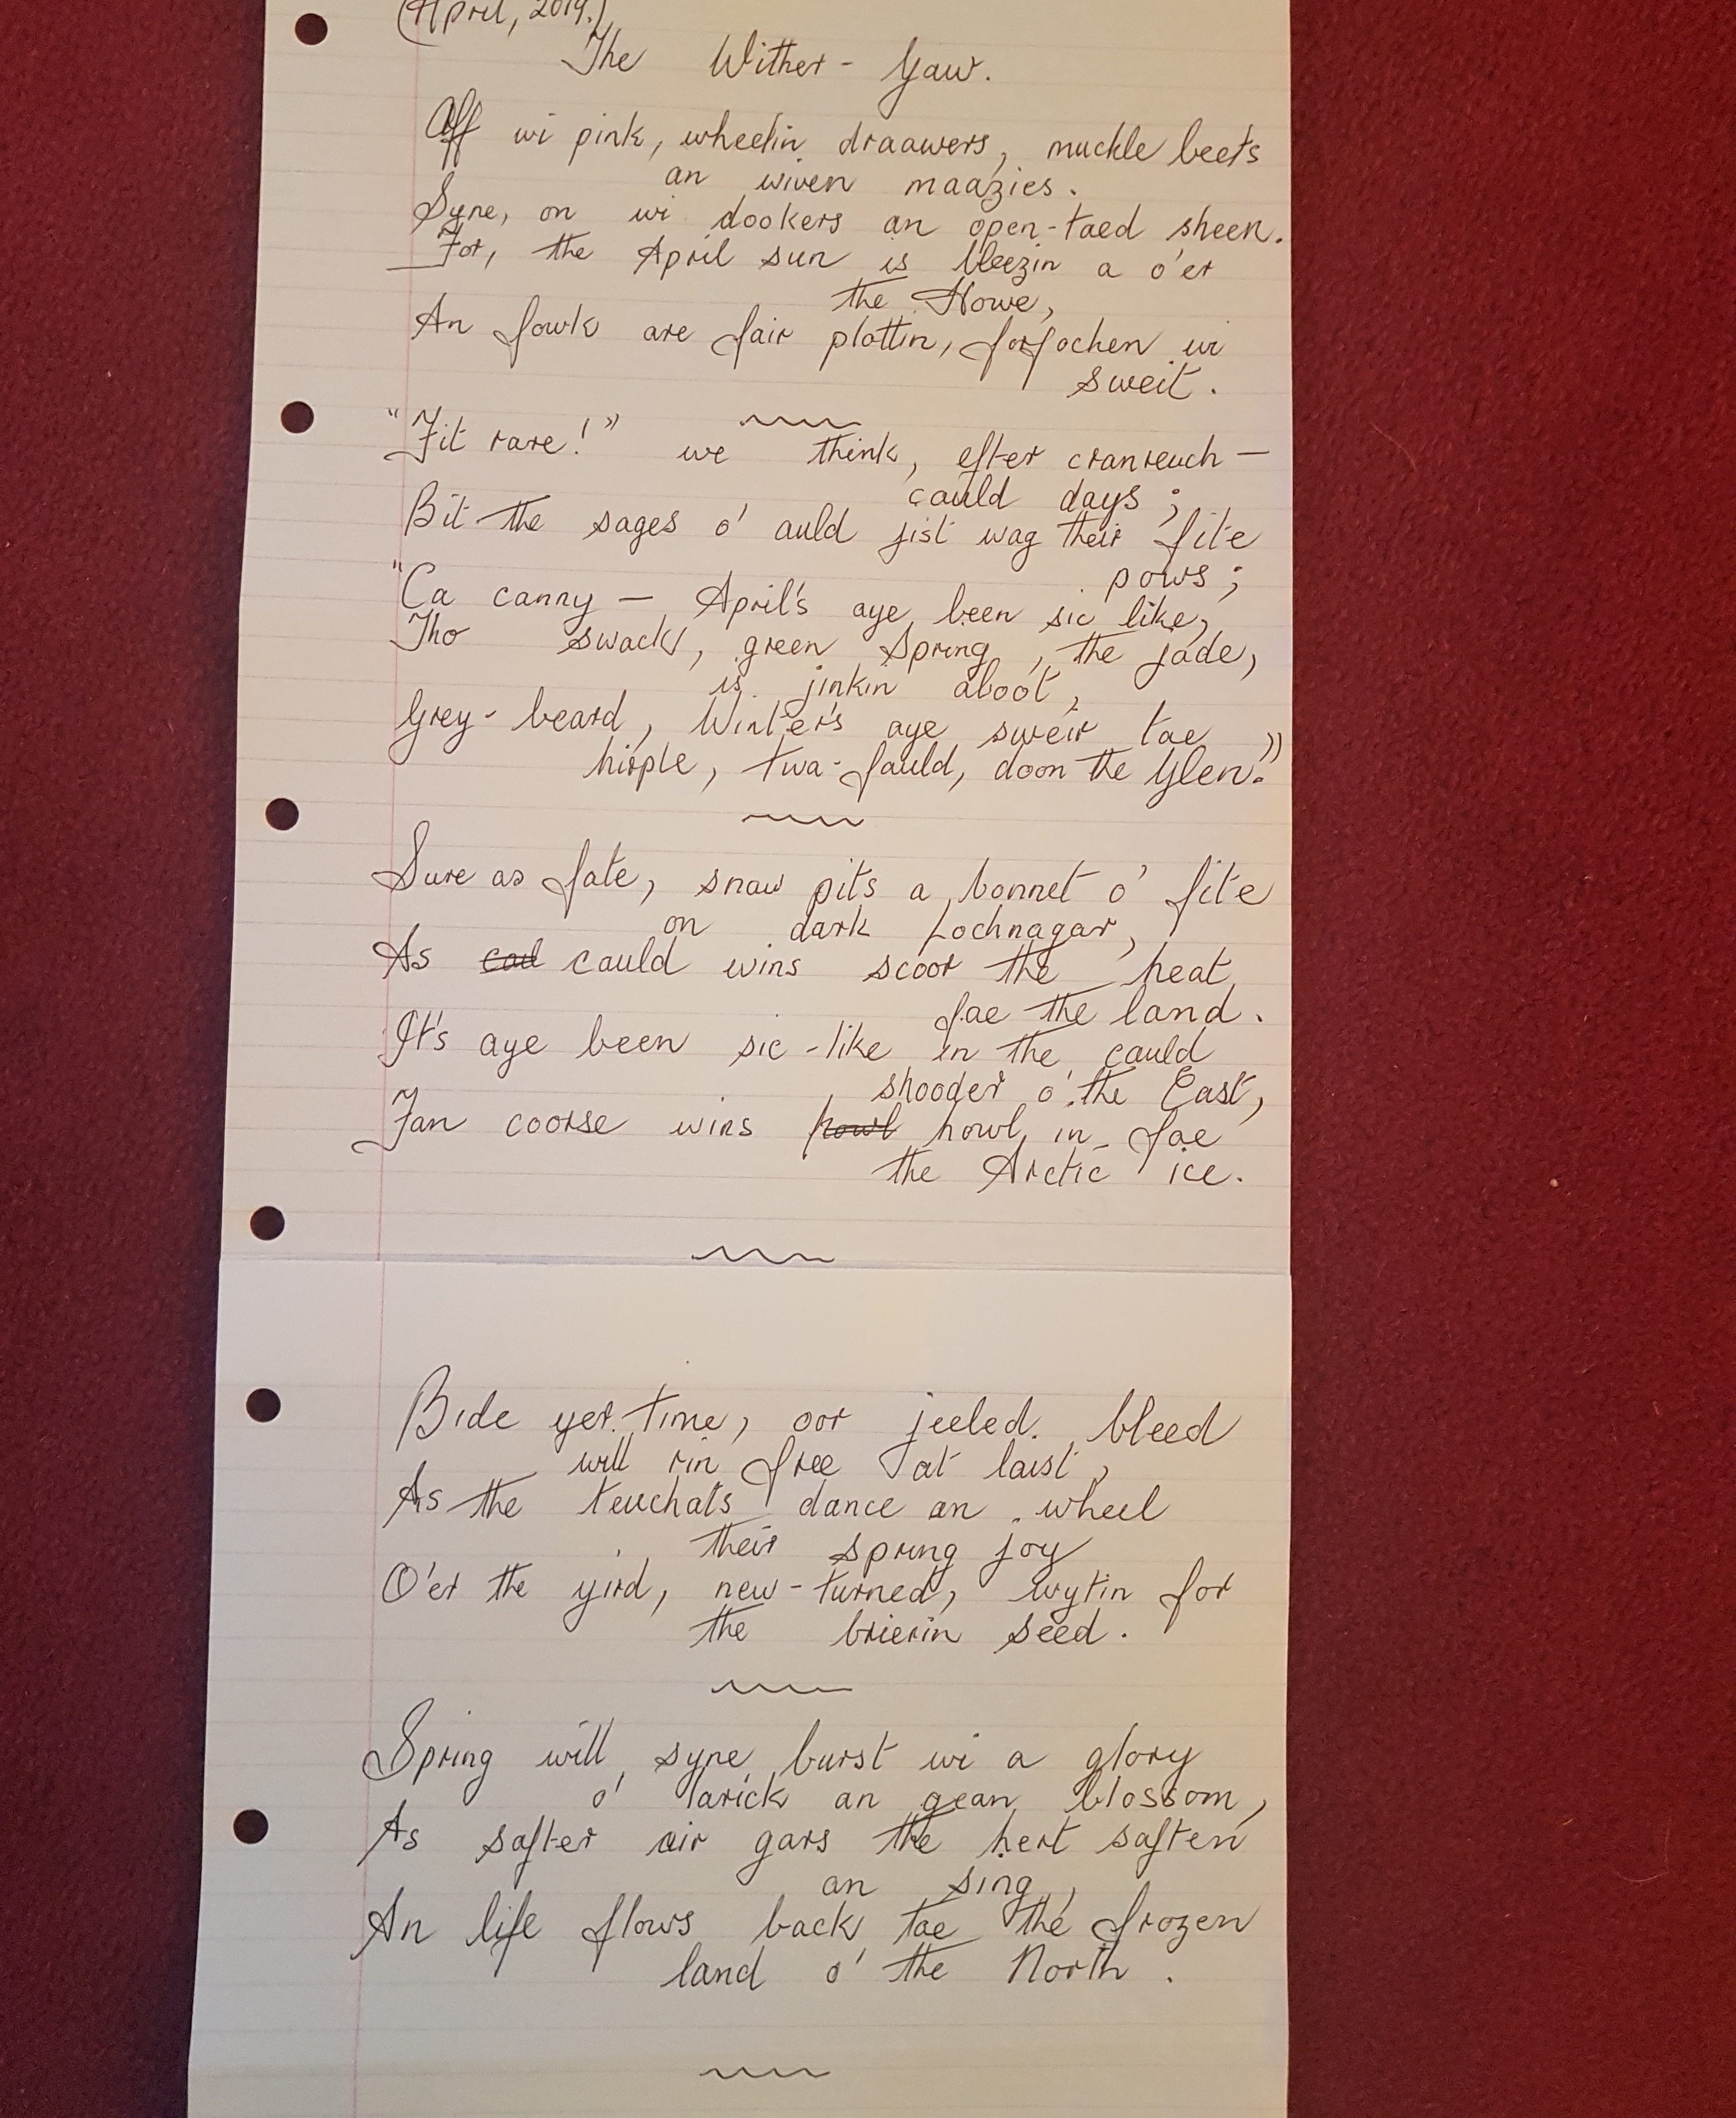 (April, 2019.)
The Wither-Gaw.
Off wi pink, wheelin draawers, muckle beets
an wiven maazies.
Syne, on wi dookers an open-taed sheen.
For, the April sun is bleezin a o'er
the Howe,
An fowk are fair plottin, forfochen wi
sweit.
"Fit rare!" we think, efter cranreuch-
cauld days;
Bit the sages o' auld jist wag their fite
pows;
"Ca canny – April's aye been sic like,
Tho swack, green Spring, the jade,
is jinkin aboot,
Grey-beard, Winter's aye sweir tae
hirple, twa-fauld, doon the Glen."
Sure as fate, snaw pits a bonnet o' fite
on dark Lochnagar,
As cauld wins scoor the heat
fae the land.
It's aye been sic-like in the cauld
shooder o' the East,
Fan coorse wins howl in fae
the Arctic ice.
Bide yer time, oor jeeled bleed
will rin free at laist,
As the teuchats dance an wheel
their spring joy
O'er the yird, new-turned, wytin for
the brierin seed.
Spring will syne burst wi a glory
o' larick an gean blossom,
As safter air gars the hert saften
an sing,
An life flows back tae the frozen
land o' the North.